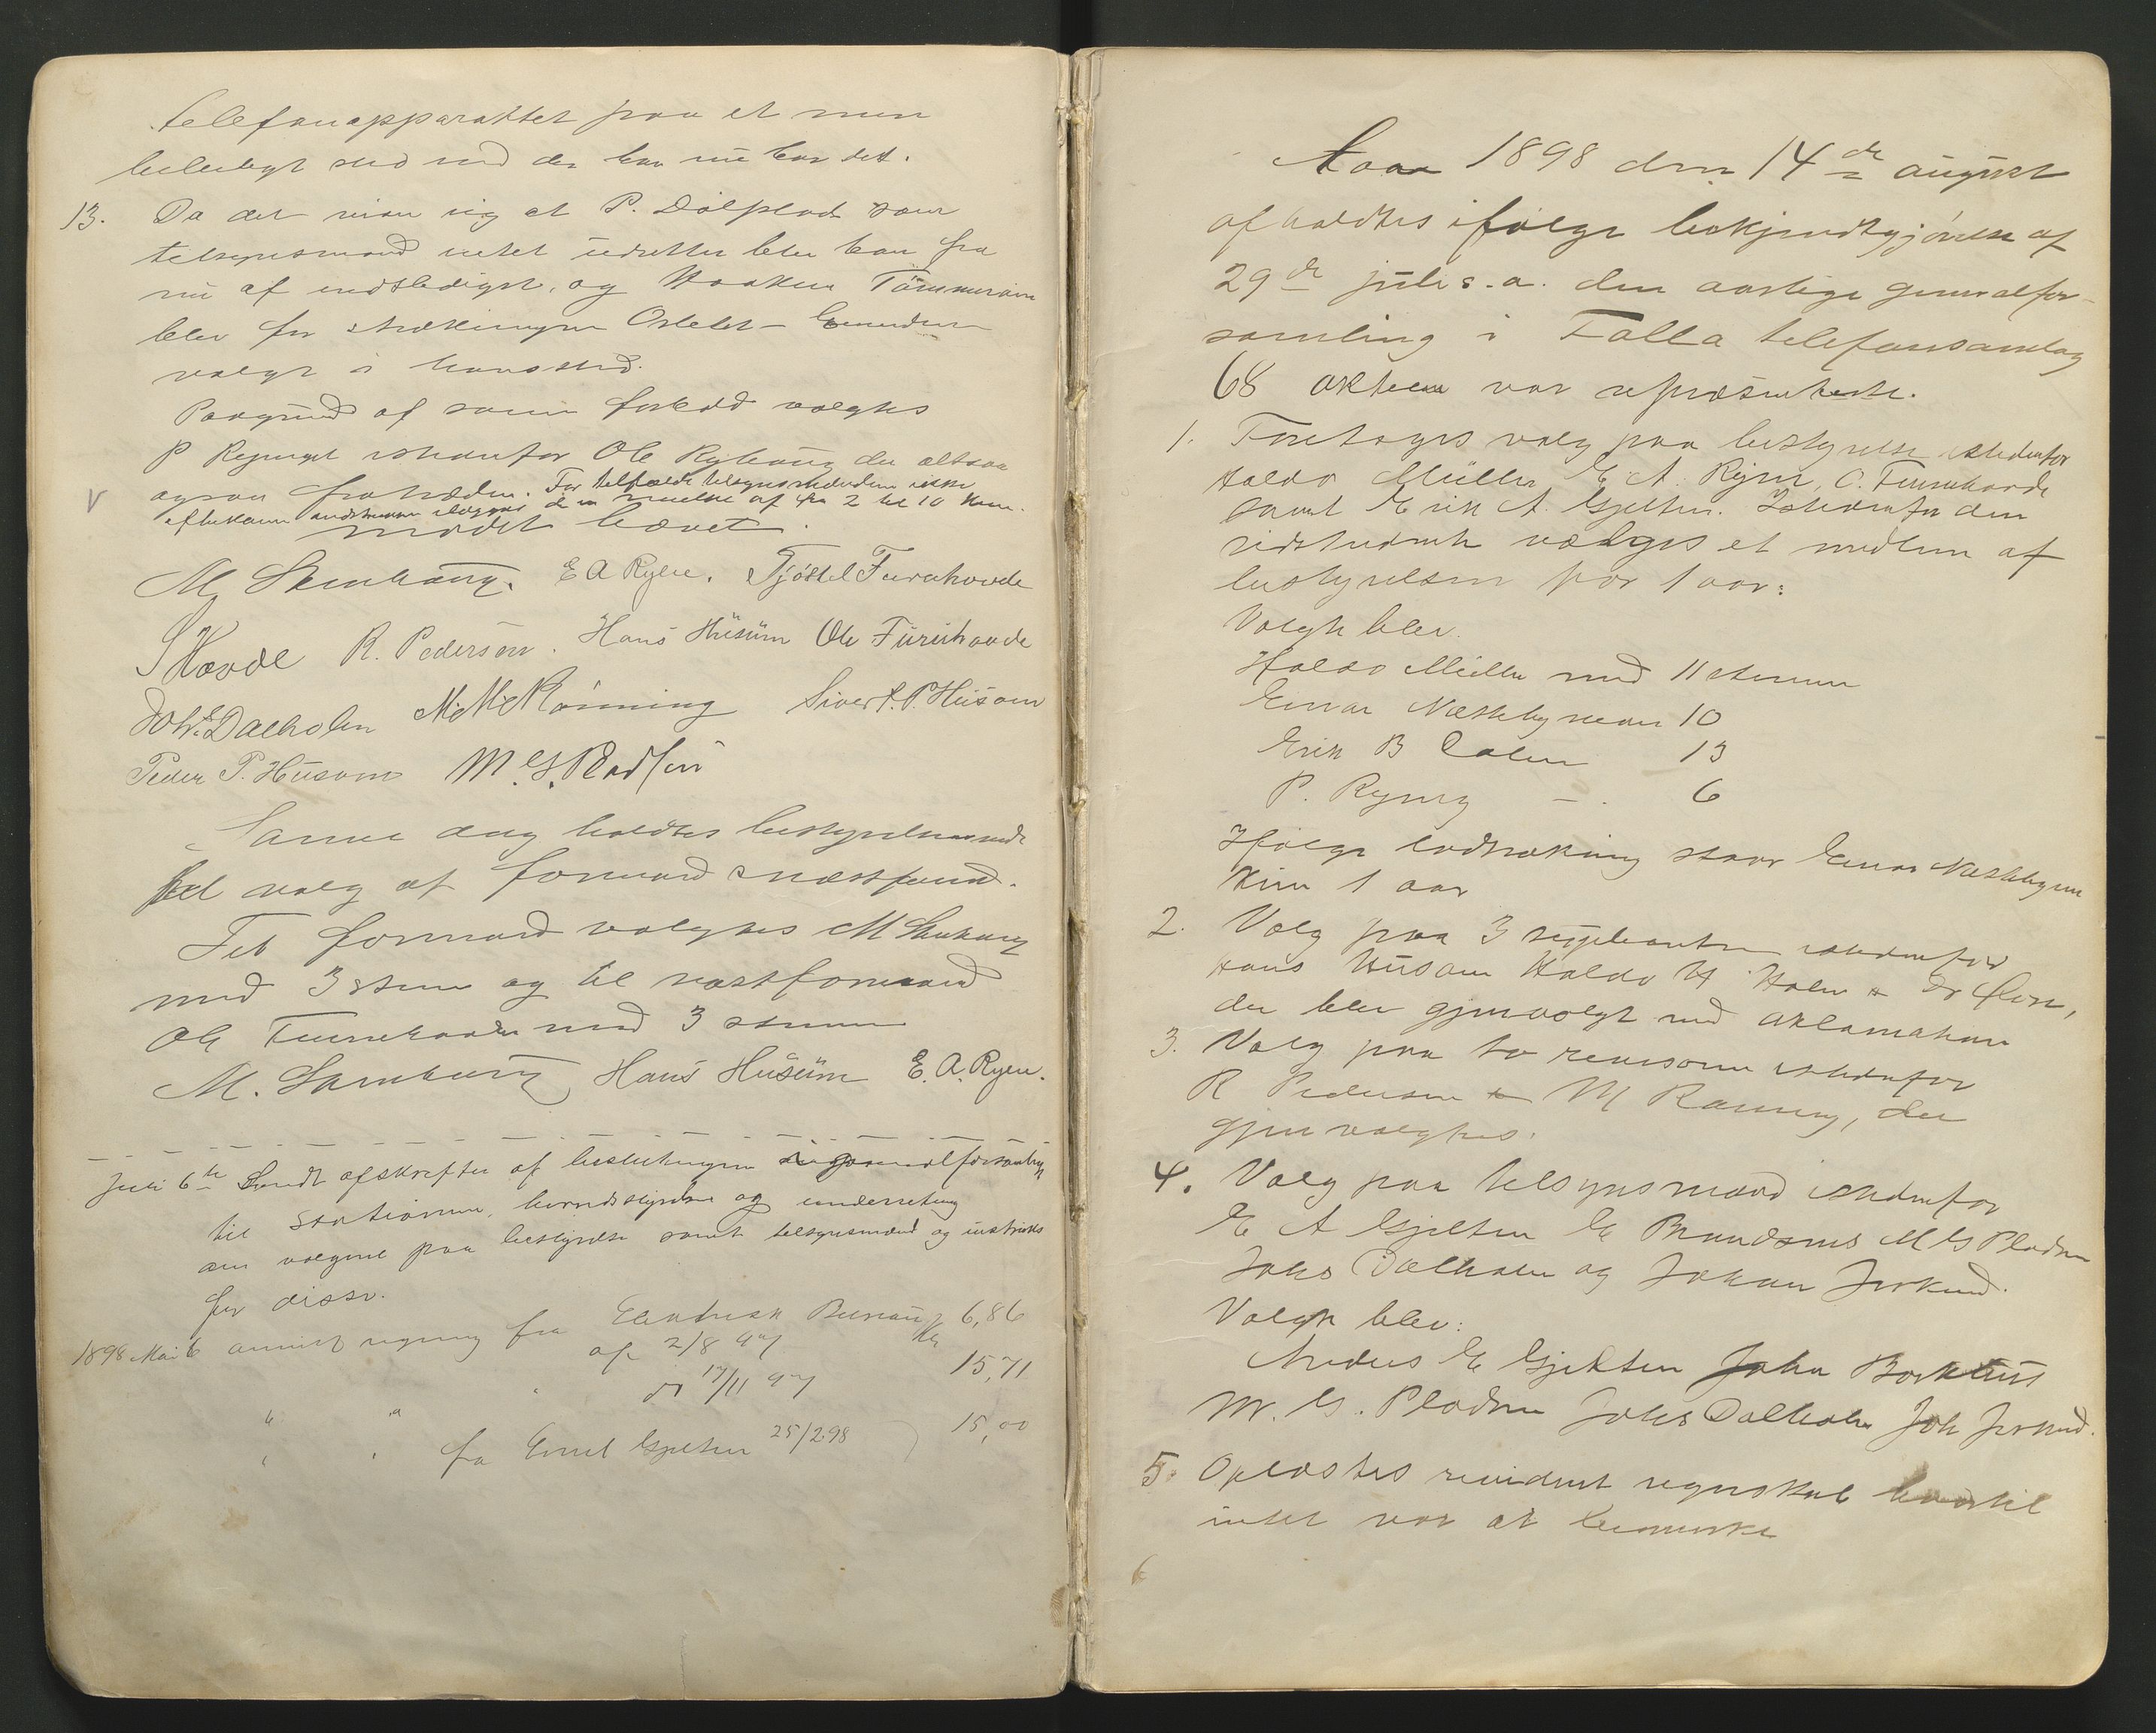 telefonapparattet paa et mere
beleiligt sted end der han nu har det.
13. Da det viser sig at P. Dölplads som
tilsynsmand intet udretter blev han fra
nu af endtlediget, og Haaken Tömmeraas
blev for strækningen Oslebt -
valgt i hans sted.
Paagrund af samme forhold valgtes
P Regnget istedenfor Ole Rybaug der altsaa
ogsaa fratræder. For tilfælde tilsynsmændene ikke
efterkommer instruxen ilægges de en mulkt af fra 2 til 10 kron.
mödet hævet
M Stenhaug. E A Ryen. Tjöstel Furuhovde
S Hovde R. Pedersen. Hans Husum Ole Furuhovde
Johs. Dalholen M. M. Rönning Sivert P. Husom
Peder P. Husom M. G. Pladsen
Samme dag holdtes bestyrelsesmöde
til valg af formand & næstformd.
Til formand valgtes M Stenhaug
med 3 stem og til næstformand
Ole Furuhovde med 3 stemmer
M. Stenhaug Hans Husum E. A. Ryen.
Juli 6te Sendt afskrifter af beslutningen i generalforsamling
til stationerne, herredsstyrelse og underretning
om valgene paa bestyrelse samt tilsynsmænd og instruks
for disse.
1898 Mai 6 anvist regning fra Elektrisk Bureau 6,86
af 2/8 97 Kr
do 17/11 97 15,71
" " fra Emil Gjelten 25/2 98 15,00
Aar 1898 den 14de august
afholdtes ifölge bekjendtgjörelse af
29de juli s.a. den aarlige generalfor-
samling i Folla telefonsamlag
68 aktier var repræsenterte.
1. Foretoges valg paa bestyrelse istedenfor
Haldo Müller E. A. Ryen, O. Furuhovde
samt Erik A. Gjelten. Istedenfor den
sidstnævnte vælges et medlem af
bestyrelsen for 1 aar:
Valgte blev.
Haldo Müller med 11 stemmer
Einar Næsteby 10
Erik B Dalen 13
P. Regneg - 6
Ifölge lodtrækning staar Einar Næsteby
kun 1 aar
2. Valg paa 3 supleanter istedenfor
Hans Husom Haldo H Holen &
der blev gjenvalgt med aklamation
3. Valg paa to revisorer istedenfor
R Pedersen & M Rönning, der
gjenvalgtes.
4. Valg paa tilsynsmænd istedenfor
E A Gjelten E Brandsnes M G Pladsen
Johs Dalholen og Johan Jorkind.
Valgte blev:
Anders E Gjelten John Borkhus
M. G. Pladsen Johs Dalholen Joh Jorkind.
5. Oplæstes revideret regnskab hvortil
intet var at bemerke